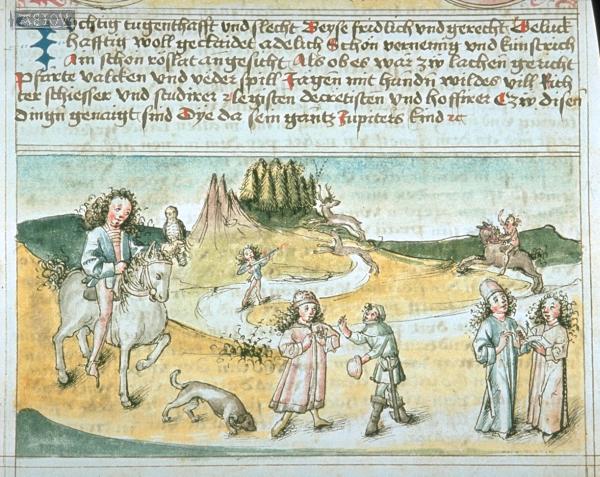 Zůchtig tugenthafft und slecht Weyse fridlich und gerecht Geluck
hafftig woll geclaidet adelich Schon vernemig und kunstrich
Ain schön roslat angesicht Als ob es war zw lachen gericht
Pfärte valcken und veder spill Jagen mit hundn wildes vill Rich
ter schiesser und studirer Legisten decretisten und hoffirer Czw disen
dingn genaigt sind Dye da sein gantz Jupiters kind etc